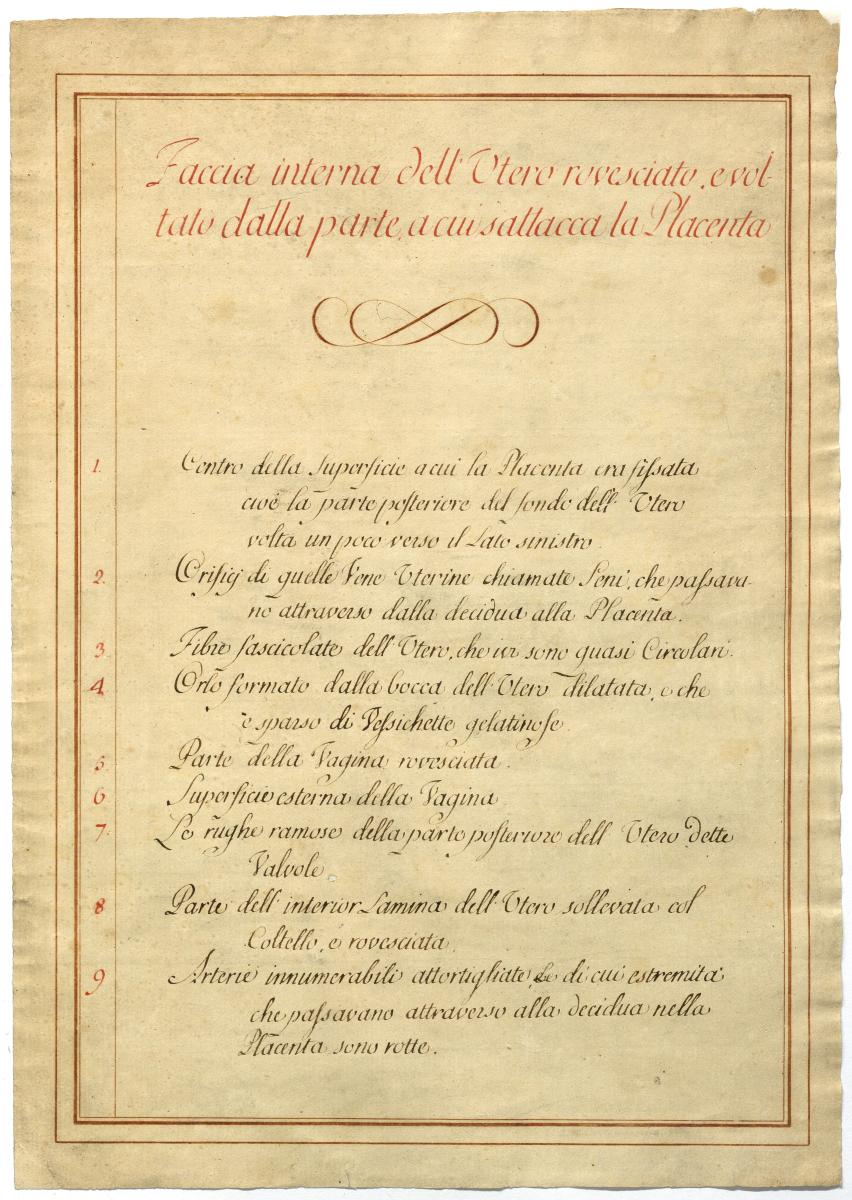 Faccia interna dell' Utero rovesciato, e vol-
tato dalla parte, a cui s'attacca la Placenta
1. Centro della Superficie a cui la Placenta era fiſsata
cioè la parte poſteriore del fondo dell' Utero
volta un poco verso il Lato sinistro.
2. Orifigj di quelle Vene Uterine chiamate Seni, che paſsava-
no attraverso dalla decidua alla Placenta.
3. Fibre fascicolate dell' Utero, che ivi sono quasi Circolari.
4 Orlo formato dalla bocca dell' Utero dilatata, e che
è sparso di Veſsichette gelatinoſe.
5. Parte della Vagina rovesciata.
6 Superficie esterna della Vagina
7. Le rughe ramose della parte poſteriore dell' Utero Dette
Valvole
8 Parte dell' interior Lamina dell' Utero sollevata col
Coltello, e rovesciata.
9 Arterie innumerabili attortigliate, Le di cui estremità
che paſsavano attraverso alla decidua nella
Placenta sono rotte.